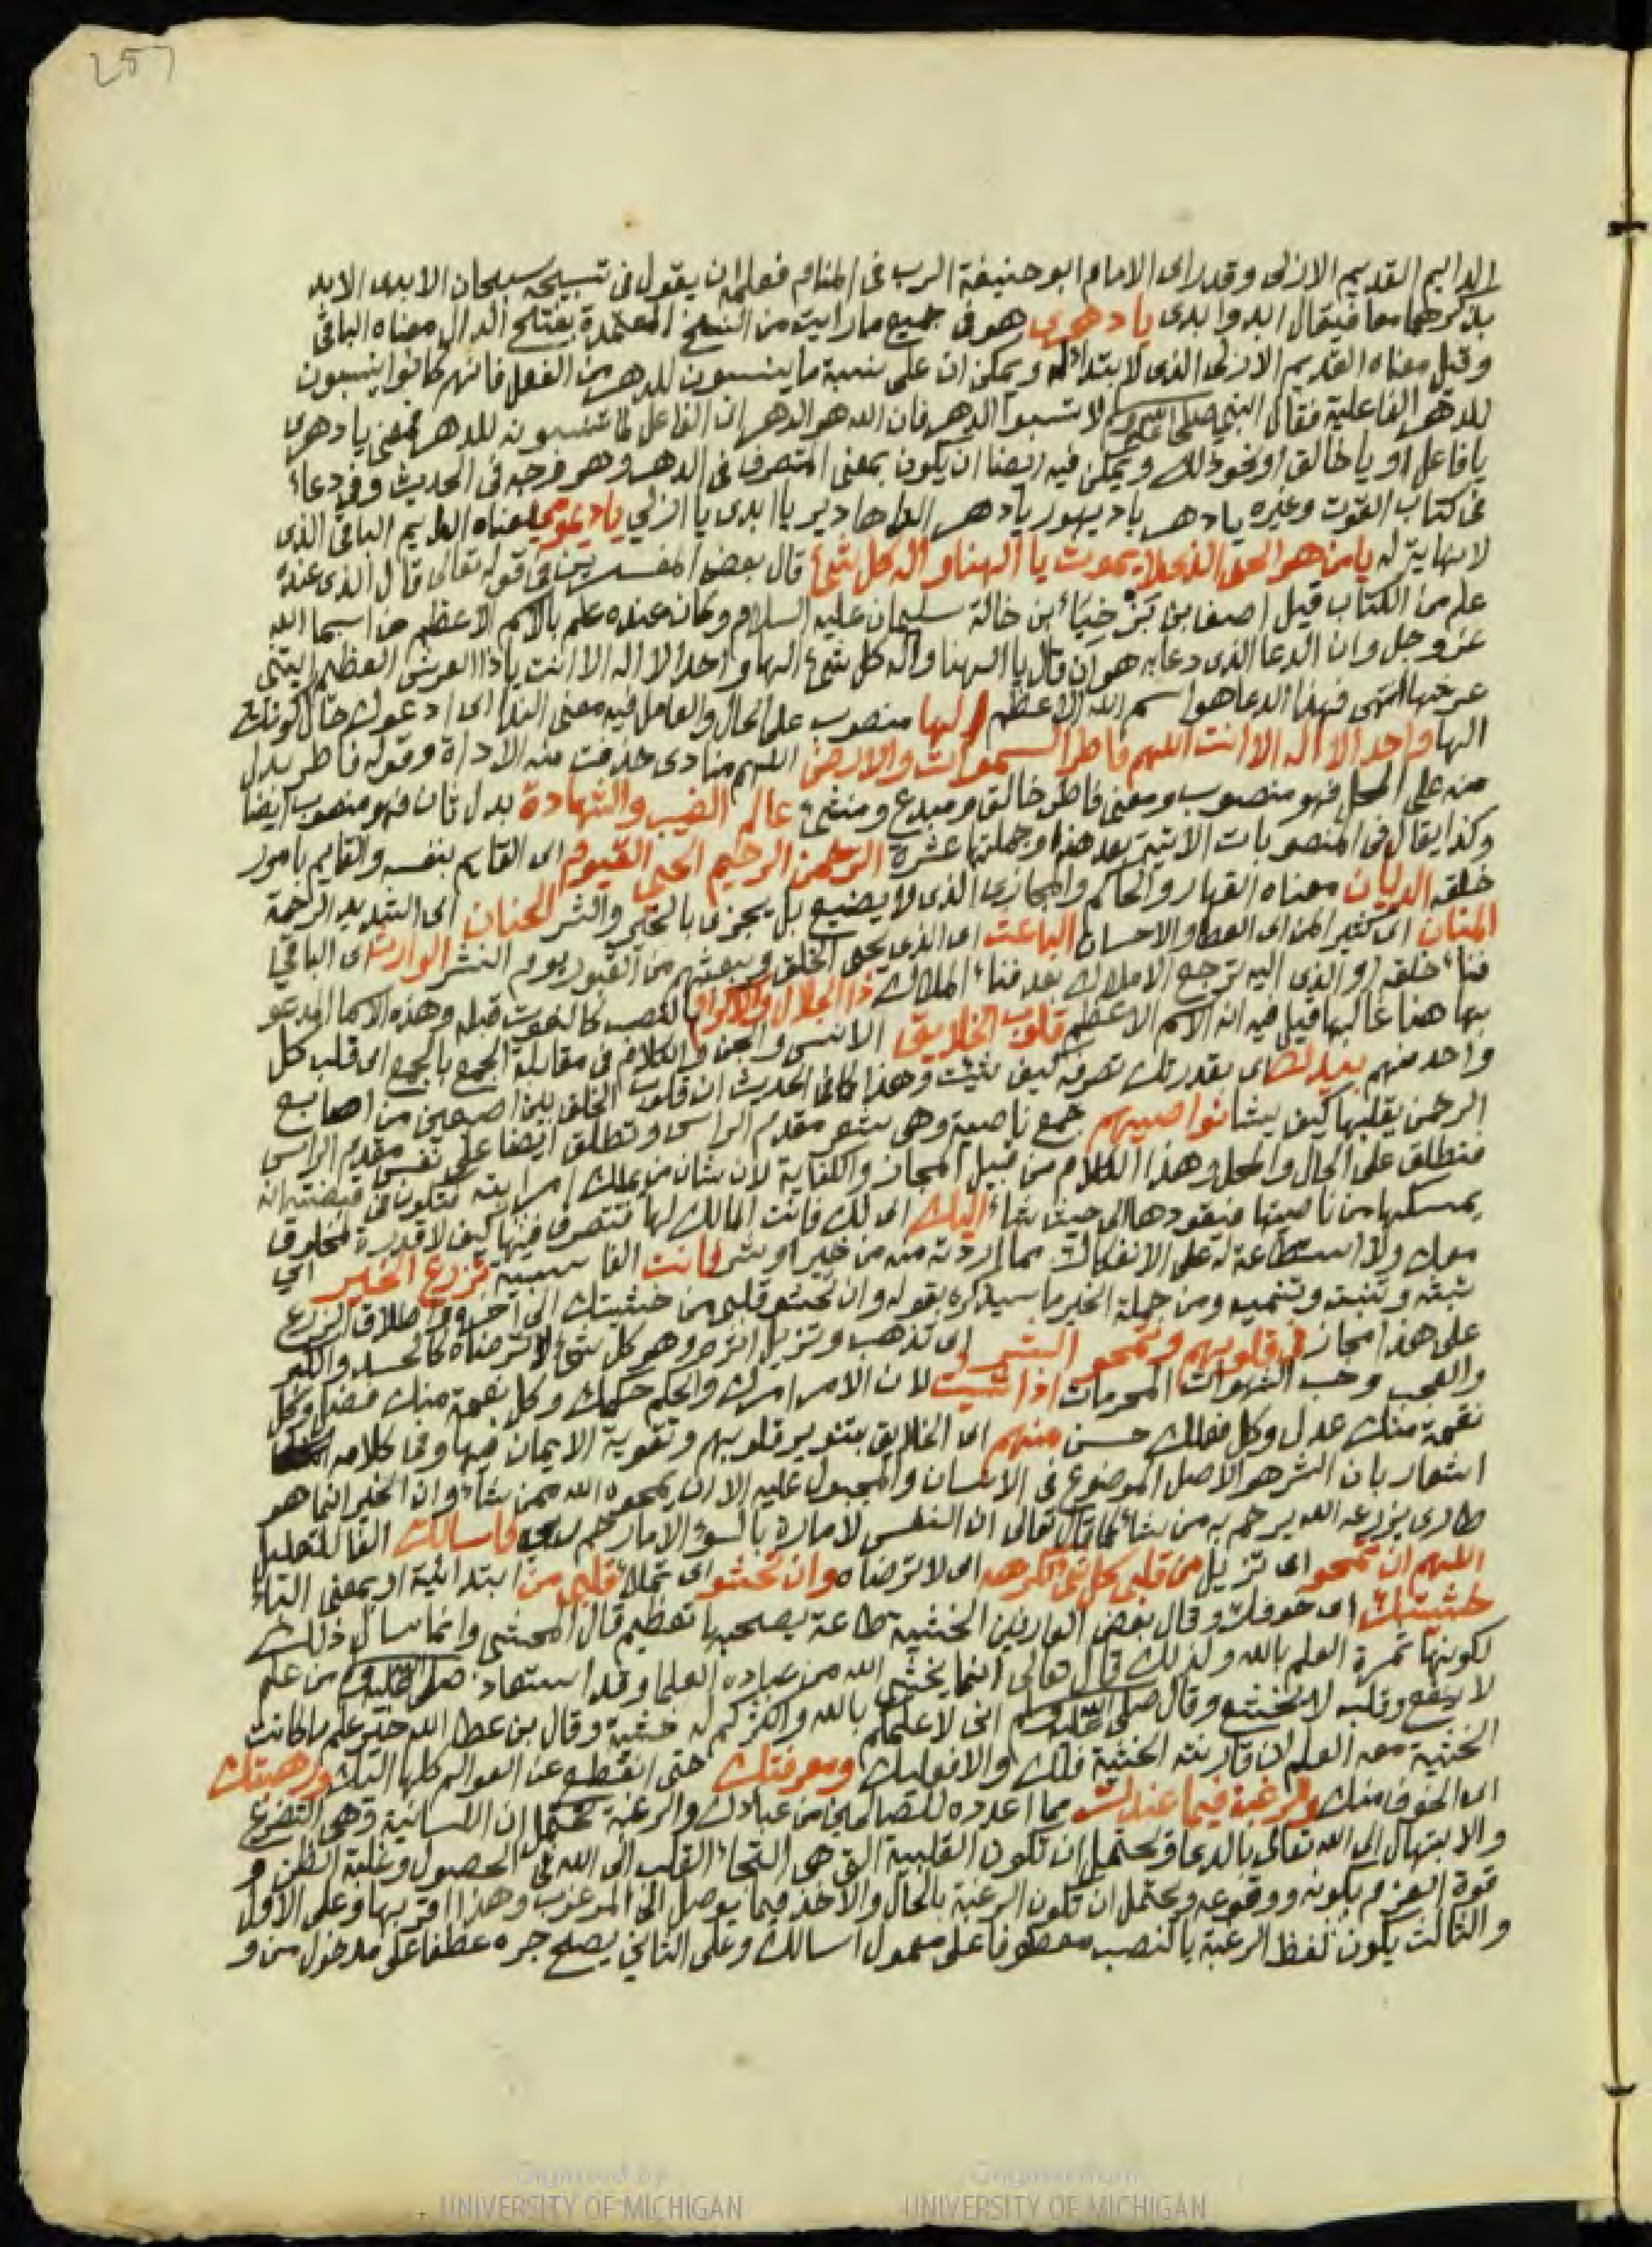 257
الدايم القديم الازلى وقد راى الامام ابو حنيفة الرب فى المنام فعلمه ان يقول فى تسبيحه سبحان الابدى الابد
بذكرهما معا فيقال ابد وابدى يا دهرى هو فى جميع ما رايت من النسخ المعتمدة بفتح الدال معناه الباقى
وقيل معناه القديم الازلى الذى لا ابتدا له ويمكن ان على نسبة ما ينسبون للدهر من الفعل فانهم كانوا ينسبون
للدهر الفاعلية فقال النبى صلى الله عليه وسلم لا تسبوا الدهر فان الله هو الدهر اى الفاعل لما تنسبونه للدهر فمعنى يا دهرى
يا فاعل او يا خالق او نحو ذلك ويمكن فيه ايضا ان يكون بمعنى المتصرف فى الدهر وهو فرجه فى الحديث وفى دعاء
فى كتاب القوت وغيره يا دهر يا ديهور يا دهر الدهادير يا ابدى يا ازلي يا ديمومى معناه الدايم الباقى الذى
لا نهاية له يا من هو الحى الذى لا يموت يا الهنا واله كل شئ قال بعض المفسرين فى قوله تعالى قال الذى عنده
علم من الكتاب قيل اصف بن برخياء ابن خالة سليمان عليه السلام وكان عنده علم بالاسم الاعظم من اسما الله
عز وجل وان الدعا الذى دعا به هو ان قال يا الهنا واله كل شئ الها واحدا لا اله الا انت يا ذا العرش العظيم ايتنى
عرشها انتهى فهذا الدعا هو اسم الله الاعظم الها منصوب على الحال والعامل فيه معنى الندا اى ادعوك حال كونك
الها واحدا لا اله الا انت اللهم فاطر السموات والارض اللهم منادى حذفت منه الاداة وقوله فاطر بدل
منه على المحل فهو منصوب ومعنى فاطر خالق ومبدع ومنشئ عالم الغيب والشهادة بدل ثان فهو منصوب ايضا
وكذا يقال فى المنصوبات الاتية بعد هذا وجملتها عشرة الرحمن الرحيم الحي القيوم اى القايم بنفسه والقايم بامور
خلقه الديان معناه القهار والحاكم والمجازى الذى لا يضيع بل يجزى بالخير والشر الحنان اى الشديد الرحمة
المنان اى كثير المن اى العطا والاحسان الباعث اى الذى يحيى الخلق ويبعثهم من القبور يوم النشر الوارث اى الباقي
فناء خلقه او الذى اليه ترجع الاملاك بعد فناء الملاك ذا الجلال والاكرام بالنصب كالنعوت قبله وهذه الاسما المدعو
بها هنا غالبها قيل فيه انه الاسم الاعظم قلوب الخلايق الانس والجن والكلام فى مقابلة الجمع بالجمع اى قلب كل
واحد منهم بيدك اى بقدرتك تصرفه كيف شئت وهذا كما فى الحديث ان قلوب الخلق بين اصبعين من اصابع
الرحمن يقلبها كيف يشا نواصيهم جمع ناصية وهى شعر مقدم الراس وتطلق ايضا على نفس مقدم الراس
فتطلق على الحال والمحل وهذا الكلام من قبيل المجاز والكناية لان شان من يملك امر ابته فتكون فى قبضته انه
يمسكها من ناصيتها فيقودها الى حيث شاء اليك اى لك فانت المالك لها فتتصرف فيها كيف لا قدرة لمخلوق
معك ولا استطاعة له على الانفكاك مما اردته منه من خير او شر فانت الفا سببية تزرع الخير اي
تبثه وتنبته وتنميه ومن جملة الخير ما سيذكره بقوله وان تحشو قلبى من خشيتك الى اخره واطلاق الزرع
على هذا مجاز فى قلوبهم وتمحو الشر اى تذهب وتزيل الشر وهو كل شئ لا ترضاه كالحسد والكبر
والعجب وحب الشهوات المحرمات اذا شيت لان الامر امرك والحكم حكمك وكل نعمة منك فضل وكل
نقمة منك عدل وكل فعلك حسن منهم اى الخلايق بتنوير قلوبهم وتقوية الايمان فيها وفى كلامه
اشعار بان الشر هو الاصل الموضوع فى الانسان والمجبول عليه الا ان يمحوه الله ممن يشاء وان الخير انما هو
طارى يزرعه الله يرحم به من يشاء كما قال تعالى ان النفس لامارة بالسوء الا ما رحم ربى فاسالك الفا للتعليل
اللهم ان تمحو اى تزيل من قلبى كل شئ تكرهه اى لا ترضاه وان تحشو اى تملا قلبى من ابتدائية او بمعنى الباء
خشيتك اى خوفك وقال بعض العارفين الخشية طاعة يصحبها تعظيم قال المحشى وانما سال ذلك
لكونها ثمرة العلم بالله ولذلك قال تعالى انما يخشى الله من عباده العلما وقد استعاذ صلى الله عليه وسلم من علم
لا ينفع وقلب لا يخشع وقال صلى الله عليه وسلم انى لاعلمكم بالله واكثركم له خشية وقال بن عطا الله خير علم ما كانت
الخشية معه العلم ان قارنته الخشية فلك والا فعليك ومعرفتك حتى انقطع عن العوالم كلها اليك ورهبتك
اى الخوف منك والرغبة فيما عندك مما اعددته للصالحين من عبادك والرغبة تحتمل ان اللسانية وهى التضرع
والابتهال الى الله تعالى بالدعا ويحتمل ان تكون القلبية التى هى التجاء القلب الى الله فى الحصول وغلبة الظن و
قوة العزم بكونه ووقوعه ويحتمل ان تكون الرغبة بالحال والاخذ فيما يوصل الى المرغوب وهذا اقربها وعلى الاول
والثالث يكون لفظ الرغبة بالنصب معطوفا على معمول اسالك وعلى الثانى يصلح جره عطفا على مدخول من و
Digitized by
UNIVERSITY OF MICHIGAN
Original from
UNIVERSITY OF MICHIGAN